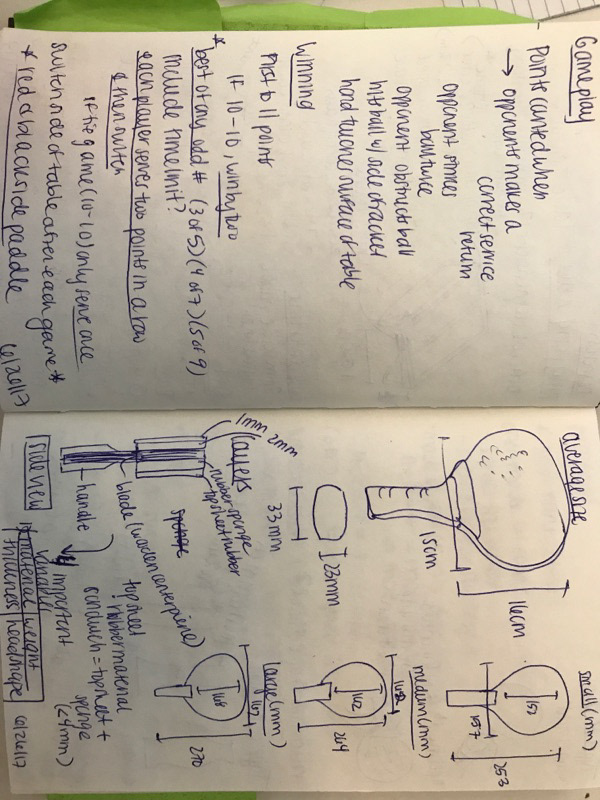 Gameplay
Points counted when
→ opponent makes a
correct service
return
opponent strikes
ball twice
opponent obstructs ball
hits ball w/ side of racket
hand touches surface of table
Winning
First to 11 points
If 10-10, win by two
* best of any odd # (3 of 5) (4 of 7) (5 of 9)
include time limit?
each player serves two points in a row
& then switch
if tie game (10-10) only serve once
switch side of table after each game *
* red & black side paddle
6/26/17
average size
16cm
15cm
23mm
33mm
layers
1mm 2mm
sponge
top sheet rubber
blade (wooden centerpiece)
handle
side view
top sheet
rubber material
sandwich = top sheet +
sponge
(<4mm)
important
variables
material weight
thickness head shape
small (mm)
152
157
253
medium (mm)
162
264
large (mm)
168
270
6/26/17